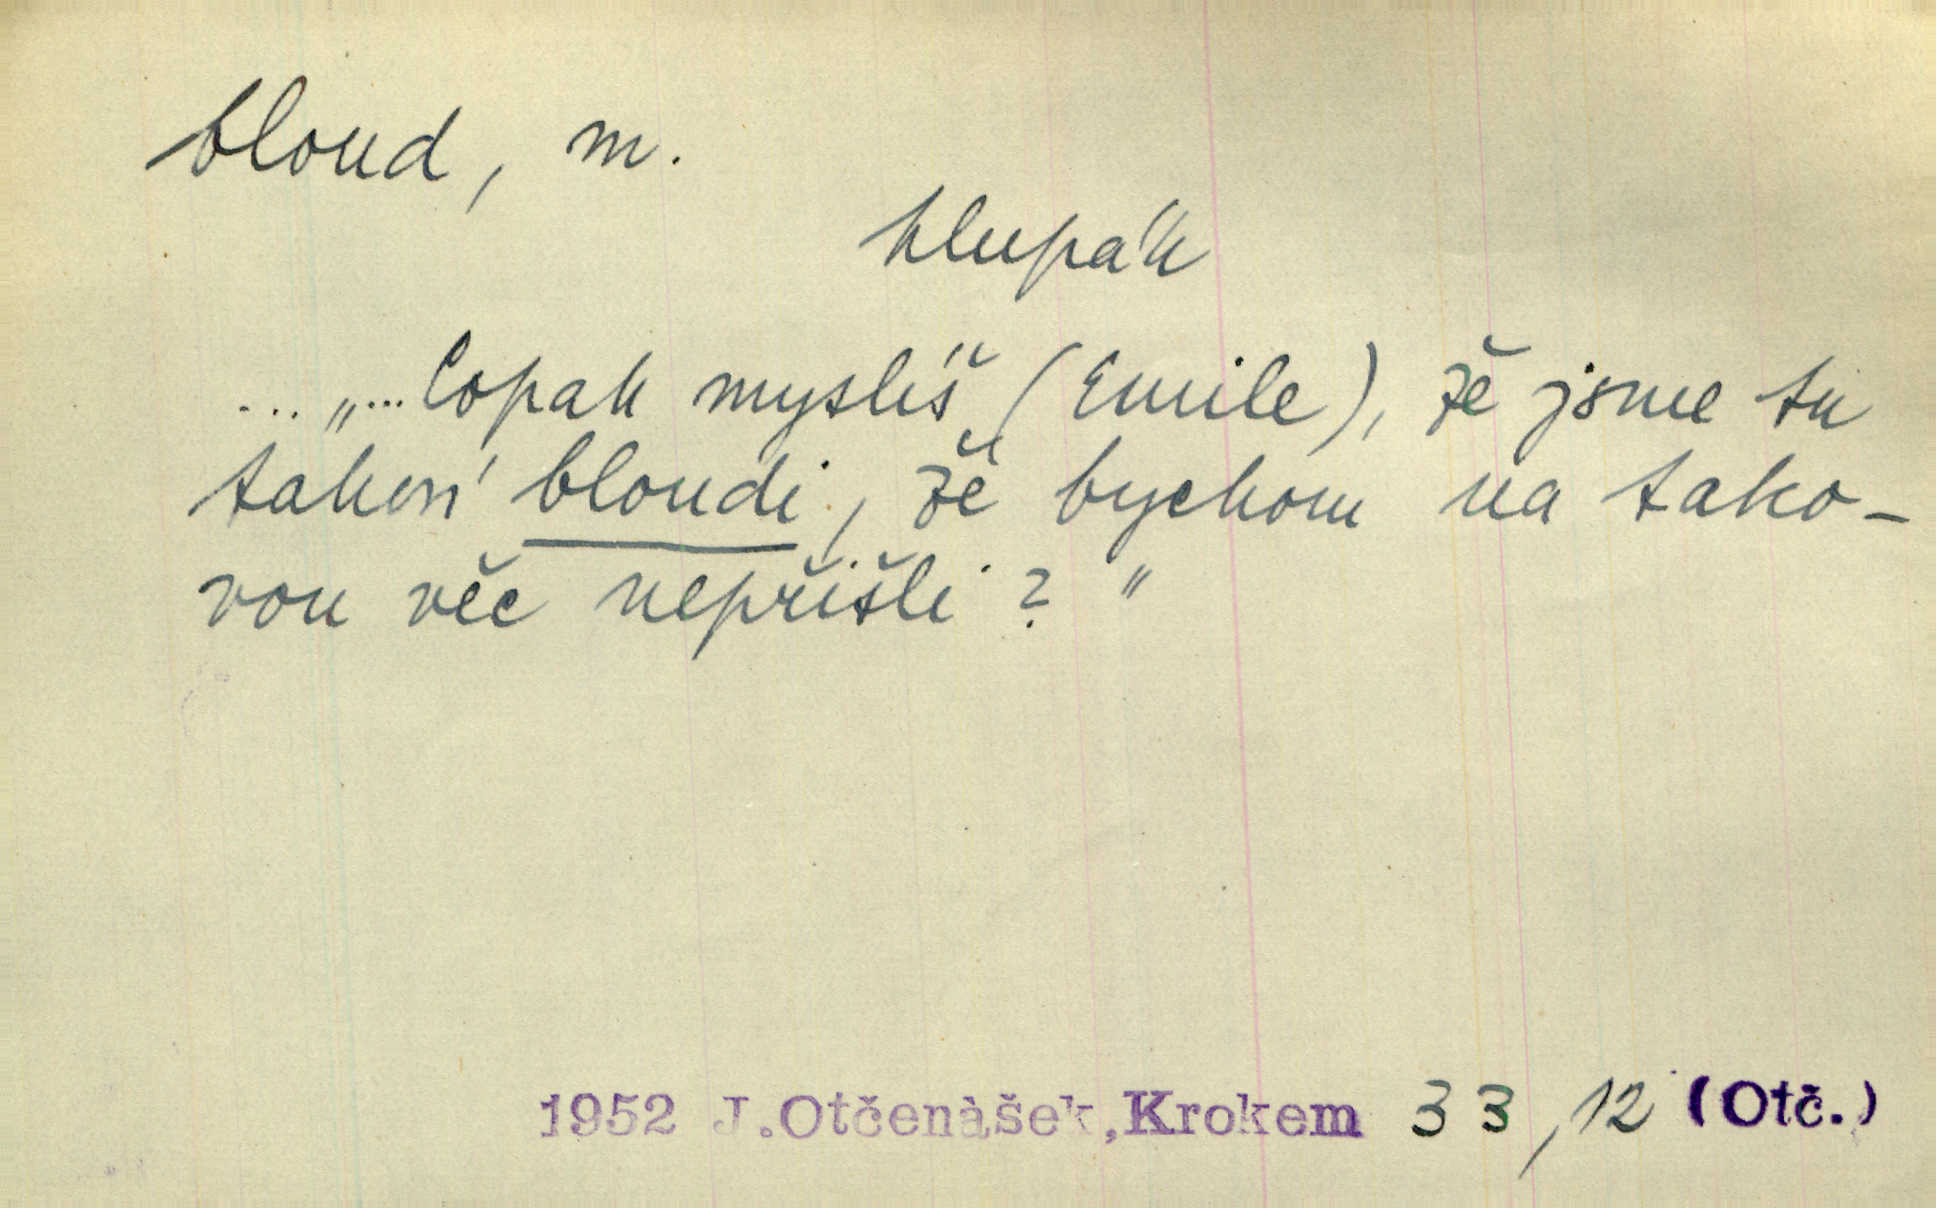 bloud, m.
hlupák
... „... Copak myslíš (Emile), že jsme tu
takoví bloudi, že bychom na tako-
vou věc nepřišli? "
1952 J.Otčenášek,Krokem 33,12 (Otč.)